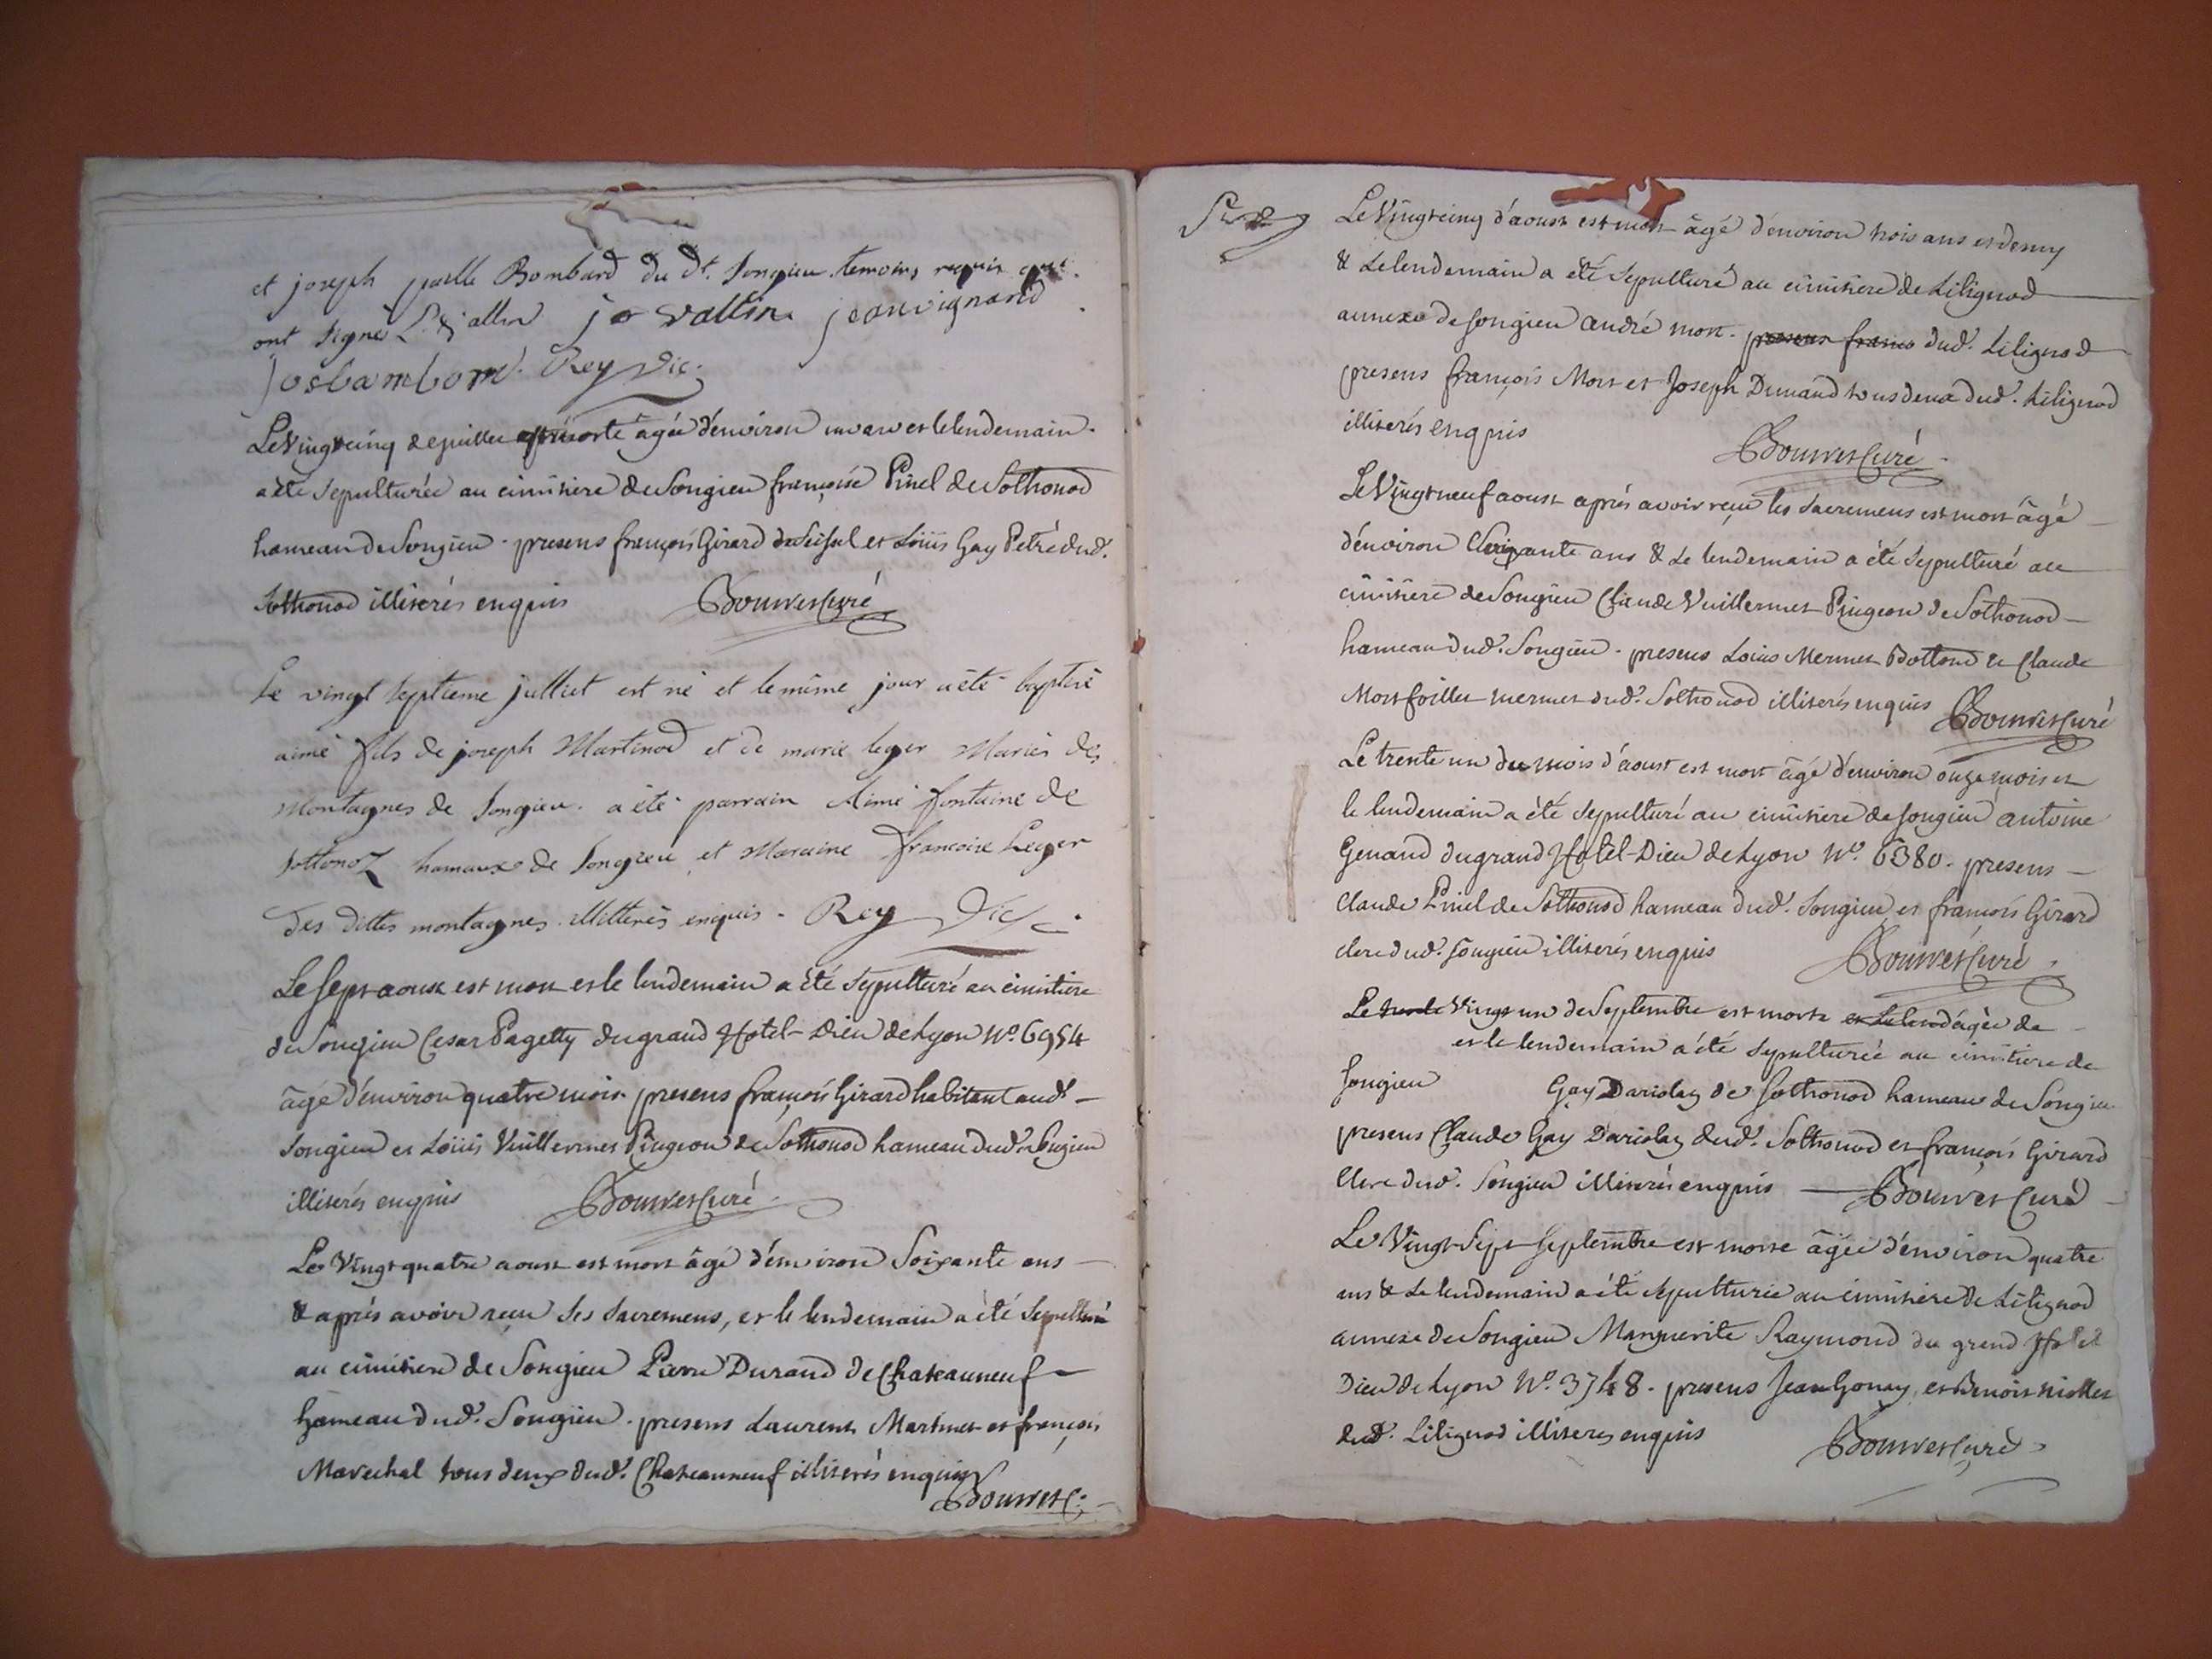 et joseph Bombard du dt. Songieu temoins requis qui
ont signé L. jallin jo vallin jean vignand
Josbambom Rey vic.
Le Vingtcinq de juillet est morte âgée d'environ un an et le lendemain
a été sepulturée au cimitiere de Songieu françoise Pinel de Sothonod
hameau de Songieu. presens françois Girard de Seissel et Loüis Gay Petré dud.
Sothonod illiterés enquis Bouvet Curé
Le vingt septieme julliet est né et le même jour a été baptisé
aimé fils de joseph Martinod et de marie leger Mariés des
Montagnes de Songieu. a été parrain Aimé fontaine de
sottonoz hamaux de Songieu et Maraine francoise Leger
des dittes montagnes illitterés enquis. Rey Vic.
Le sept aoust est mort et le lendemain a été sepulturé au cimitiere
de Songieu Cesar Pagetty du grand Hotel-Dieu de Lyon No. 6954
âgé d'environ quatre mois. presens françois Girard habitant aud.
Songieu et Loüis Vuillermet Pingeon de Sothonod hameau dud. Songieu
illiterés enquis Bouvet Curé
Le Vingt quatre aoust est mort âgé d'environ Soixante ans
& aprés avoir reçu les Sacremens, et le lendemain a été Sepulturé
au cimitiere de Songieu Pierre Durand de Chateauneuf
hameau dud. Songieu. presens Laurent Martinet et françois
Marechal tous deux dud. Chateauneuf illiterés enquis
Bouvet C.
Le Vingtcinq d'aoust est mort âgé d'environ trois ans et demy
& le lendemain a été Sepulturé au cimitiere de Lilignod
annexe de Songieu andré mort. presens franco dud. Lilignod
presens françois Mort et Joseph Dumand tous deux dud. Lilignod
illiterés enquis
Bouvet Curé
Le Vingt neuf aoust aprés avoir reçu les Sacremens est mort âgé
d'environ Soixante ans & le lendemain a été Sepulturé au
cimitiere de Songieu Claude Vuillermet Pingeon de Sothonod
hameau dud. Songieu. presens Loüis Mermet Bottond et Claude
Mort foillet mermet dud. Sothonod illiterés enquis Bouvet Curé
Le trente un du mois d'aoust est mort âgé d'environ onze mois et
le lendemain a été Sepulturé au cimitiere de Songieu antoine
Genand du grand Hotel-Dieu de Lyon No. 6380. presens
Claude Pinel de Sothonod hameau dud. Songieu et françois Girard
clerc dud. Songieu illiterés enquis Bouvet Curé
Le trente Vingt un de Septembre est morte et le lend âgée de
et le lendemain a été Sepulturée au cimitiere de
Songieu Gay Dariolaz de Sothonod hameau de Songieu
presens Claude Gay Dariolaz dud. Sothonod et françois Girard
Clerc dud. Songieu illiterés enquis Bouvet Curé
Le Vingt Sept Septembre est morte âgée d'environ quatre
ans & le lendemain a été Sepulturée au cimitiere de Lilignod
annexe de Songieu Marguerite Raymond du grend Hotel
Dieu de Lyon No. 3748. presens Jean Gonay et Benoit
dud. Lilignod illiterés enquis Bouvet Curé